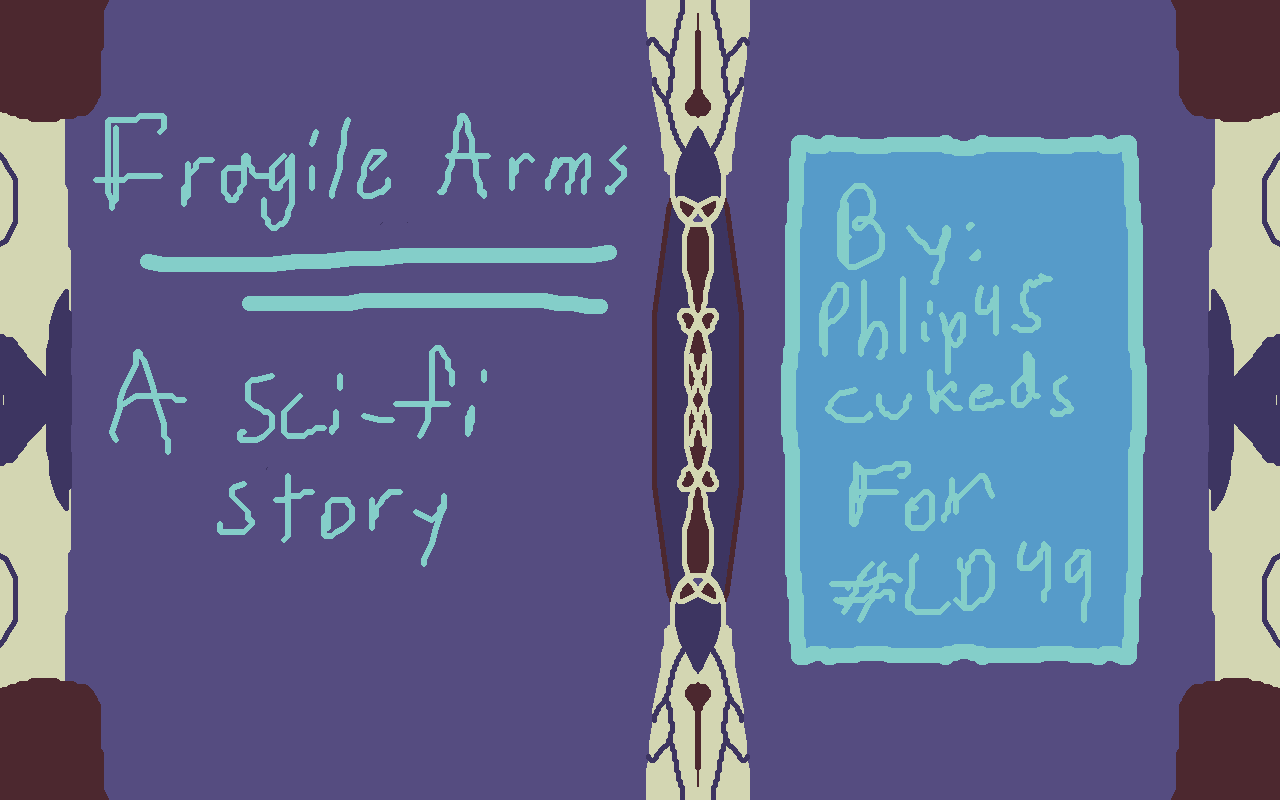 Fragile Arms
A Sci-fi
story
By:
Phlip45
cukeds
For
#LD49